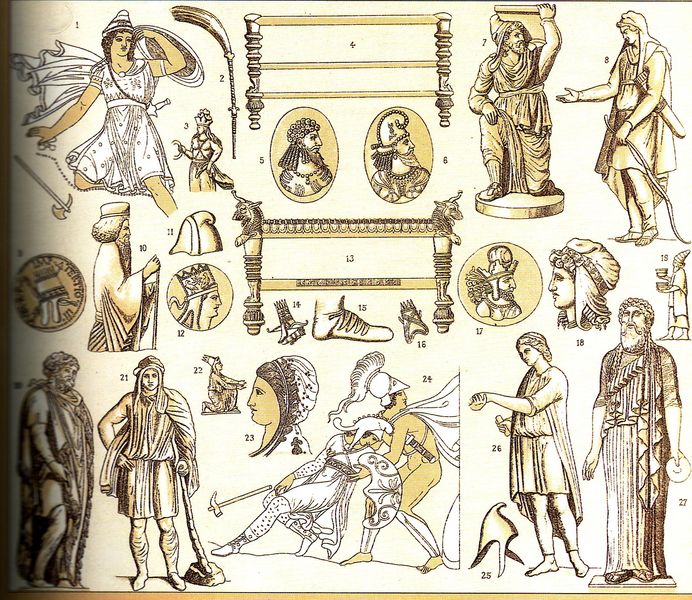 1
2
3
4
5
6
7
8
9
10
11
12
13
14
15
16
17
18
19
21
22
23
24
25
26
27